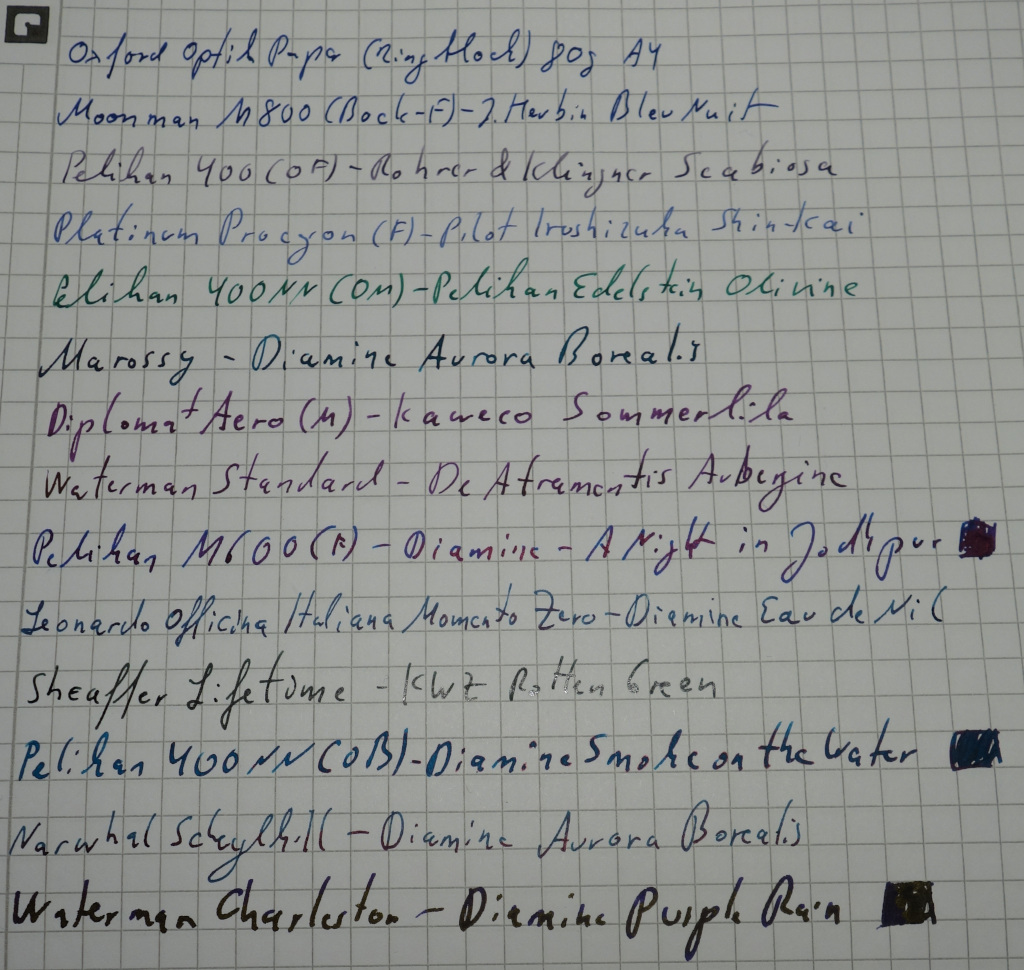 Oxford Optik Paper (Ringblock) 80g A4
Moonman M800 (Bock-F)-J. Herbin Bleu Nuit
Pelikan 400 (OF)-Rohrer & Klingner Scabiosa
Platinum Procyon (F)-Pilot Iroshizuku Shin-kai
Pelikan 400NN (OM)-Pelikan Edelstein Olivine
Marossy - Diamine Aurora Borealis
Diplomat Aero (M) - Kaweco Sommerlila
Waterman Standard - De Atramentis Aubergine
Pelikan M600 (F) - Diamine - A Night in Jodhpur
Leonardo Officina Italiana Momento Zero-Diamine Eau de Nil
Sheaffer Lifetime - KWZ Rotten Green
Pelikan 400NN (OB)-Diamine Smoke on the Water
Narwhal Schuylkill - Diamine Aurora Borealis
Waterman Charleston - Diamine Purple Rain